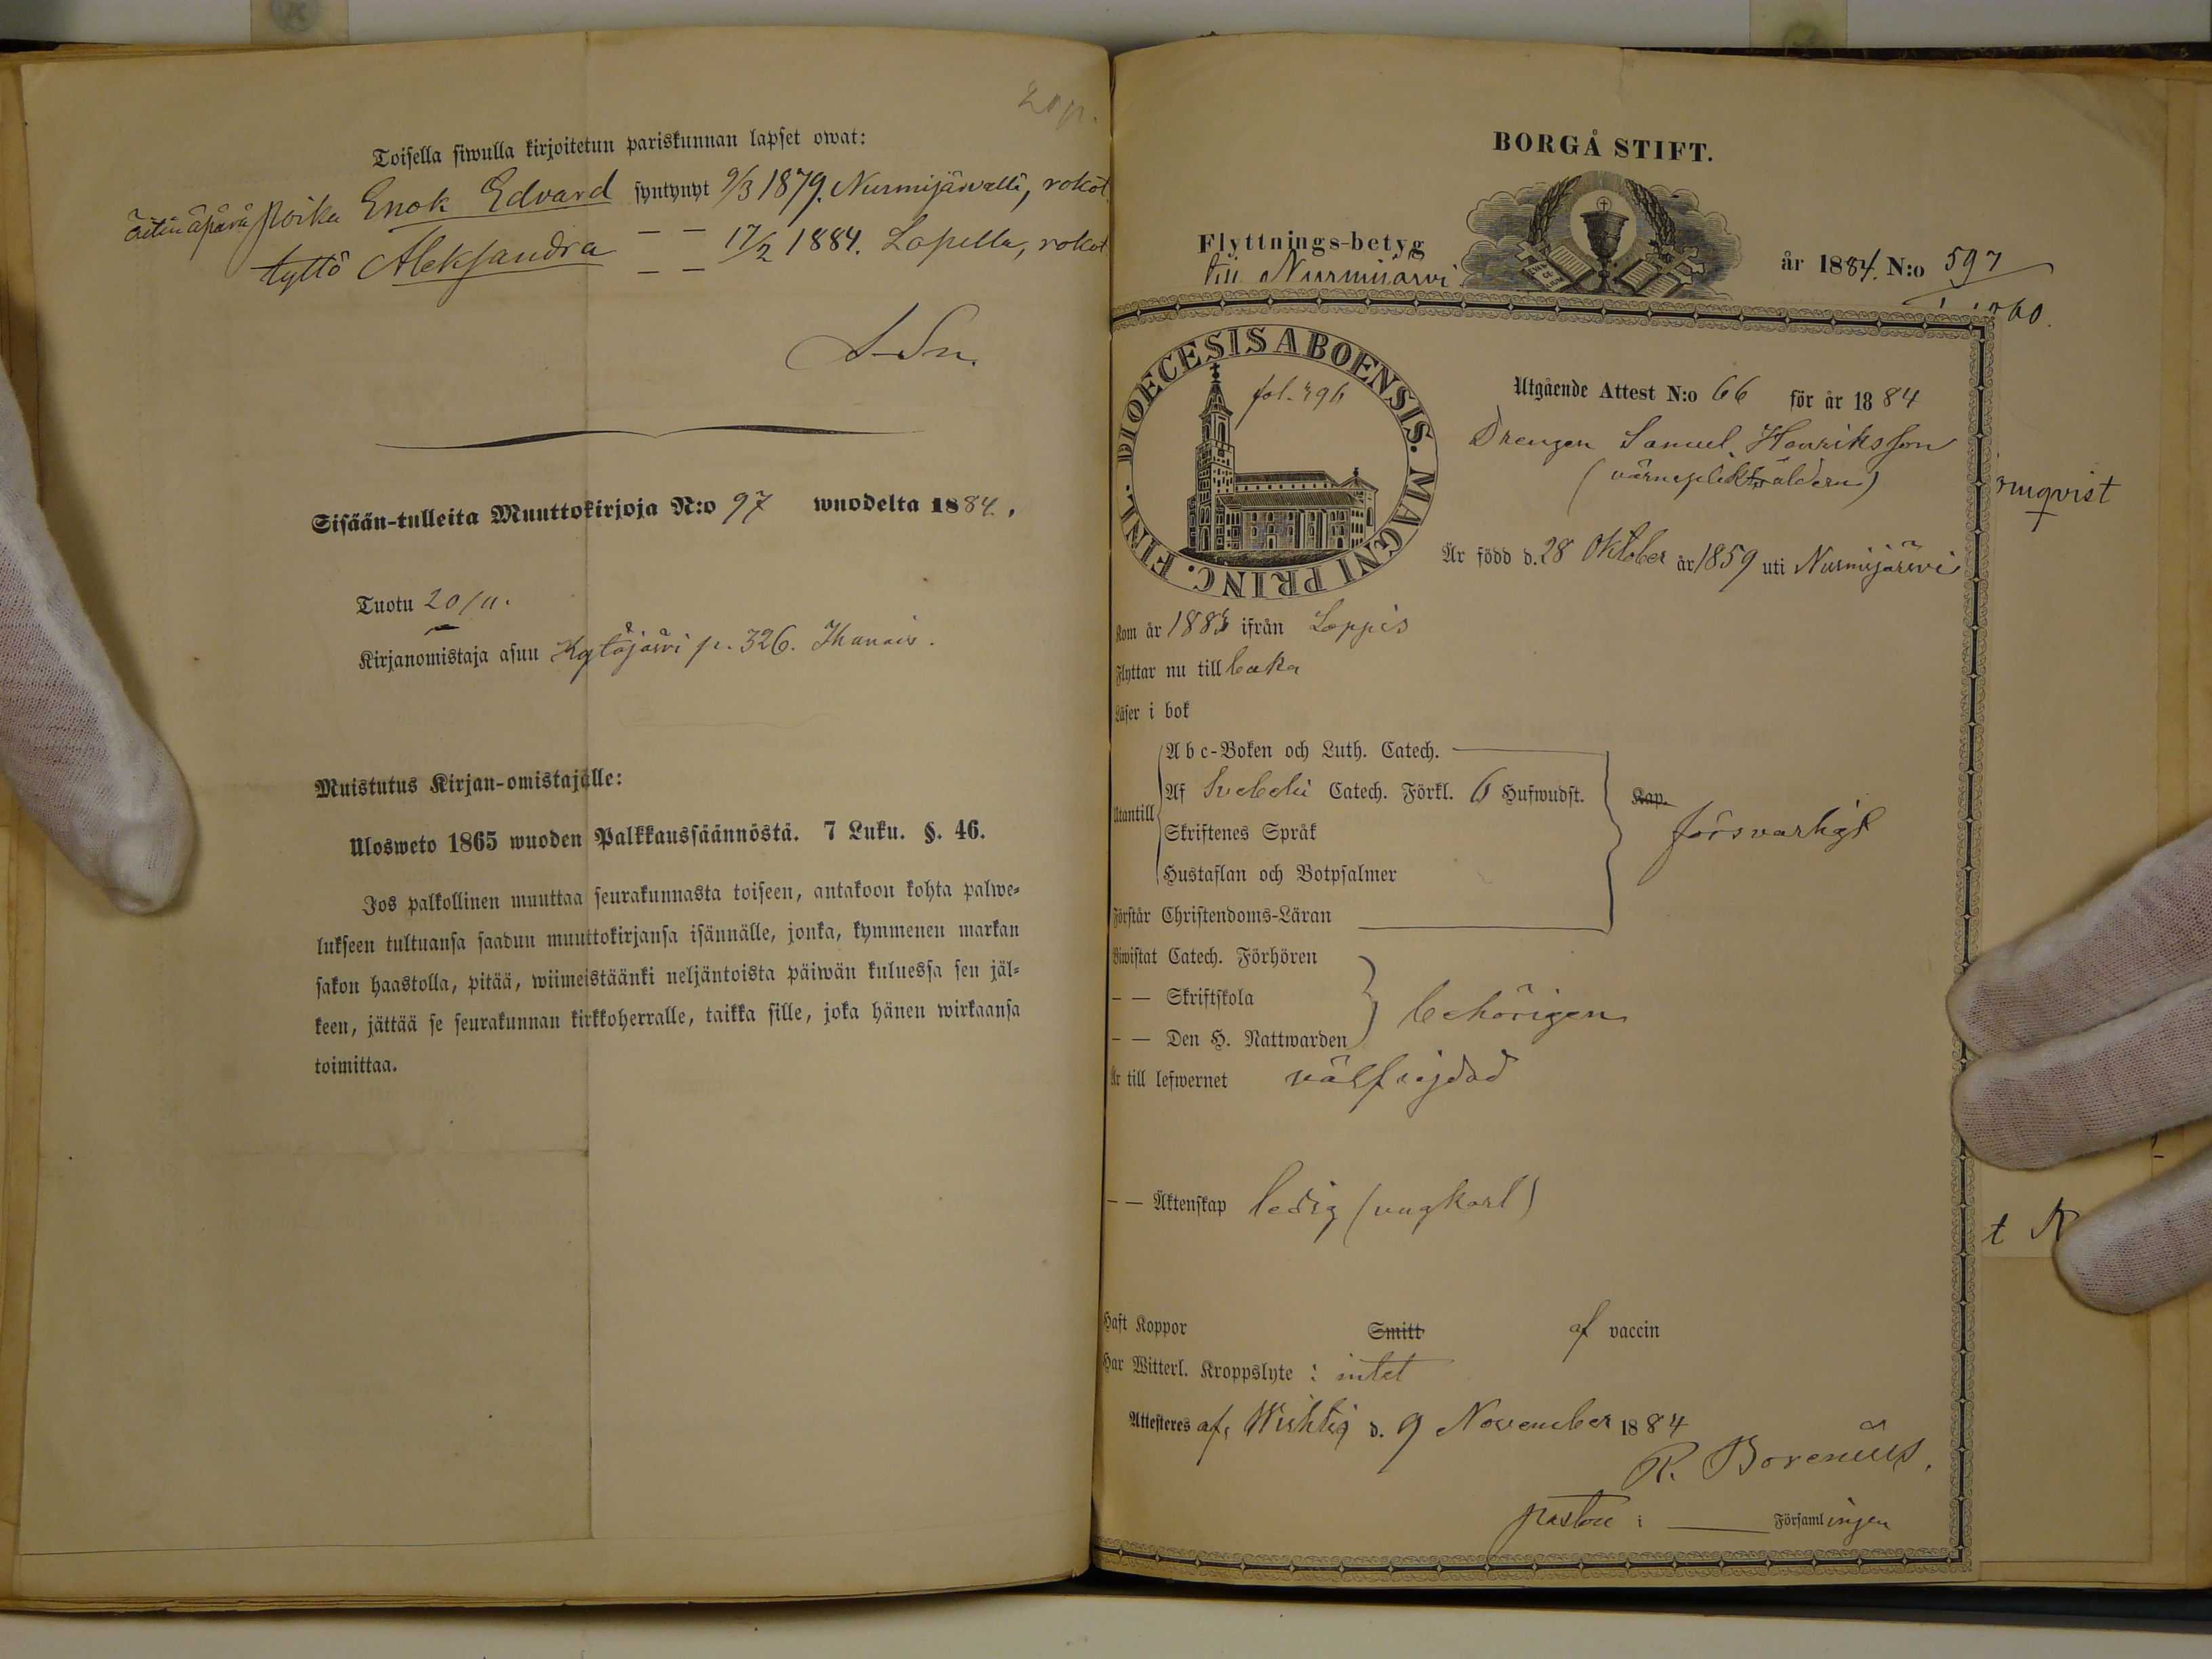 20/11.
Toisella siwulla kirjoitetun pariskunnan lapset owat:
äitin äpärä poika Enok Edvard syntynyt 9/3 1879. Nurmijärvellä, rokot.
tyttö Aleksandra — — 17/2 1884. Lopella, rokot.
— —
Sisään-tulleita Muuttokirjoja N:o 97 wuodelta 1884.
Tuotu 20/11.
Kirjanomistaja asuu Kytäjärvi p. 326.
Muistutus Kirjan-omistajalle:
Ulosweto 1865 wuoden Palkkaussäännöstä. 7 Luku. §. 46.
Jos palkollinen muuttaa seurakunnasta toiseen, antakoon kohta palwe-
lukseen tultuansa saadun muuttokirjansa isännälle, jonka, kymmenen markan
sakon haastolla, pitää, wiimeistäänki neljäntoista päiwän kuluessa sen jäl-
keen, jättää se seurakunnan kirkkoherralle, taikka sille, joka hänen wirkaansa
toimittaa.
BORGÅ STIFT.
Flyttnings-betyg
till Nurmijärvi
år 1884. N:o 597
DIOECESIS ABOENSIS. MAGNI PRINC. FINL.
fol. 396
Utgående Attest N:o 66 för år 1884
Drengen Samuel Henriksson
(värnepligtsåldern)
rnqvist
Är född d. 28 Oktober år 1859 uti Nurmijärvi
Kom år 1883 ifrån Loppis
Flyttar nu tillbaka
Läser i bok
Utantill
Abc-Boken och Luth. Catech.
Af Svebelii Catech. Förkl. 6 Hufwudst.
Skriftenes Språk
Hustaflan och Botpsalmer
Förstår Christendoms-Läran
Kap.
försvarligt
Biwistat Catech. Förhören
— — Skriftskola
— — Den H. Nattwarden
behörigen
Är till lefwernet välfrejdad
— — Äktenskap ledig (ungkarl)
t N
Haft Koppor Smitt af vaccin
Har Witterl. Kroppslyte : intet
Attesteres af, Wichtis d. 9 November 1884
R. Borenius.
pastor i — Församlingen